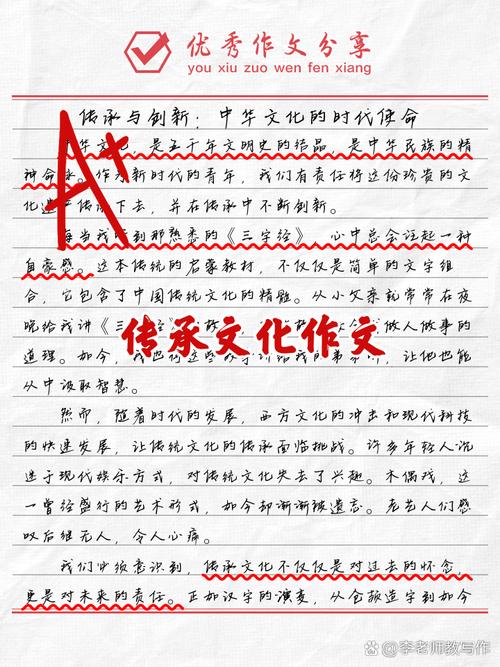 优秀作文分享
you xiu zuo wen fen xiang
传承与创新：中华文化的时代使命
A+
中华文化，是五千年文明史的结晶，是中华民族的精
神命脉。作为新时代的青年，我们有责任将这份珍贵的文
化遗产传承下去，并在传承中不断创新。
每当我听到那熟悉的《三字经》，心中总会泛起一种
自豪感。这本传统的启蒙教材，不仅仅是简单的文字组
合，它包含了中国传统文化的精髓。从小父亲就常常在夜
晚给我讲《三 做人做事的
传承文化作文
道理。如今，我也将这些 让他也能
从中汲取智慧。
然而，随着时代的发展，西方文化的冲击和现代科技
的快速发展，让传统文化的传承面临挑战。许多年轻人沉
迷于现代娱乐方式，对传统文化失去了兴趣。木偶戏，这
一曾经盛行的艺术形式，如今却渐渐被遗忘。老艺人们感
叹后继无人，令人心痛。
我们必须意识到，传承文化不仅仅是对过去的怀念，
更是对未来的责任。正如汉字的演变，从仓颉造字到如今
李老师教写作